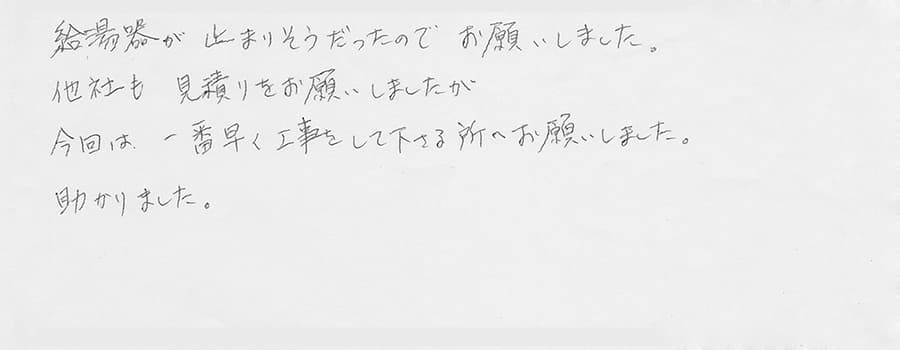 給湯器が止まりそうだったので お願いしました。
他社も 見積りをお願いしましたが
今回は、一番早く工事をして下さる所へお願いしました。
助かりました。